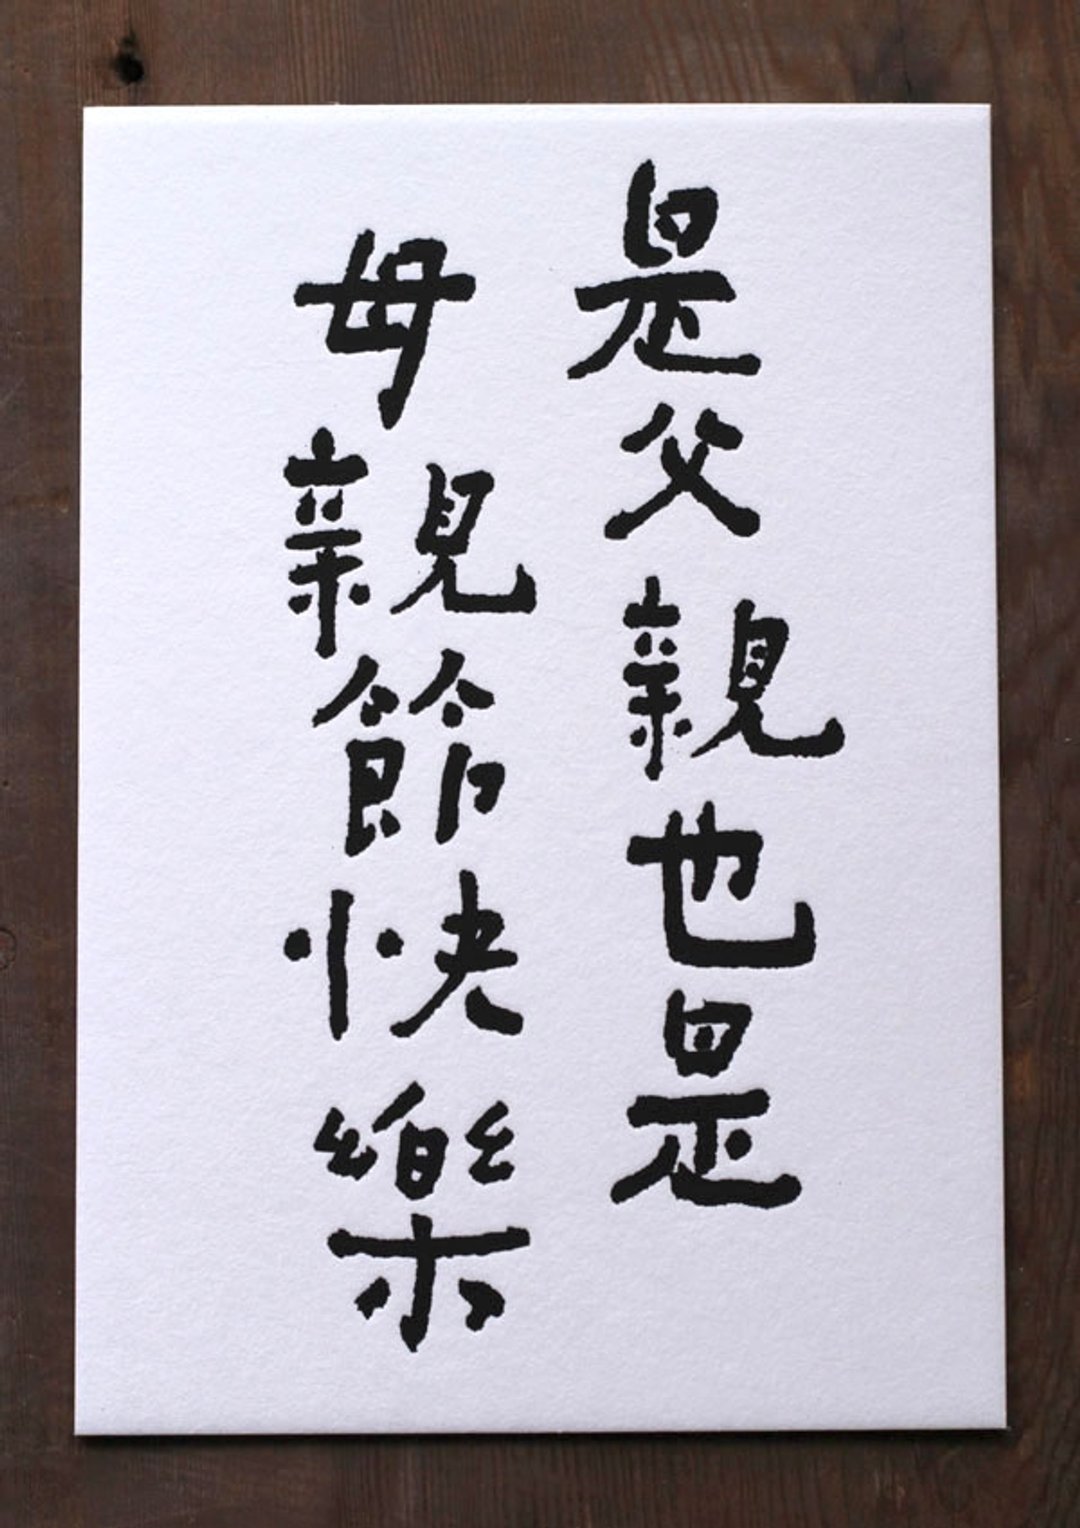 是父親也是
母親節快樂